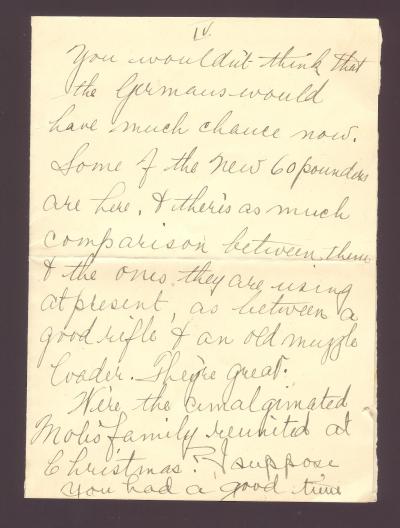 IV.
You wouldn't think that
the Germans would
have much chance now.
Some of the new 60 pounders
are here, & there's as much
comparison between them
& the ones they are using
at present, as between a
good rifle & an old muzzle
loader. They're great.
Were the amalgimated
family reunited at
Christmas? I suppose
you had a good time